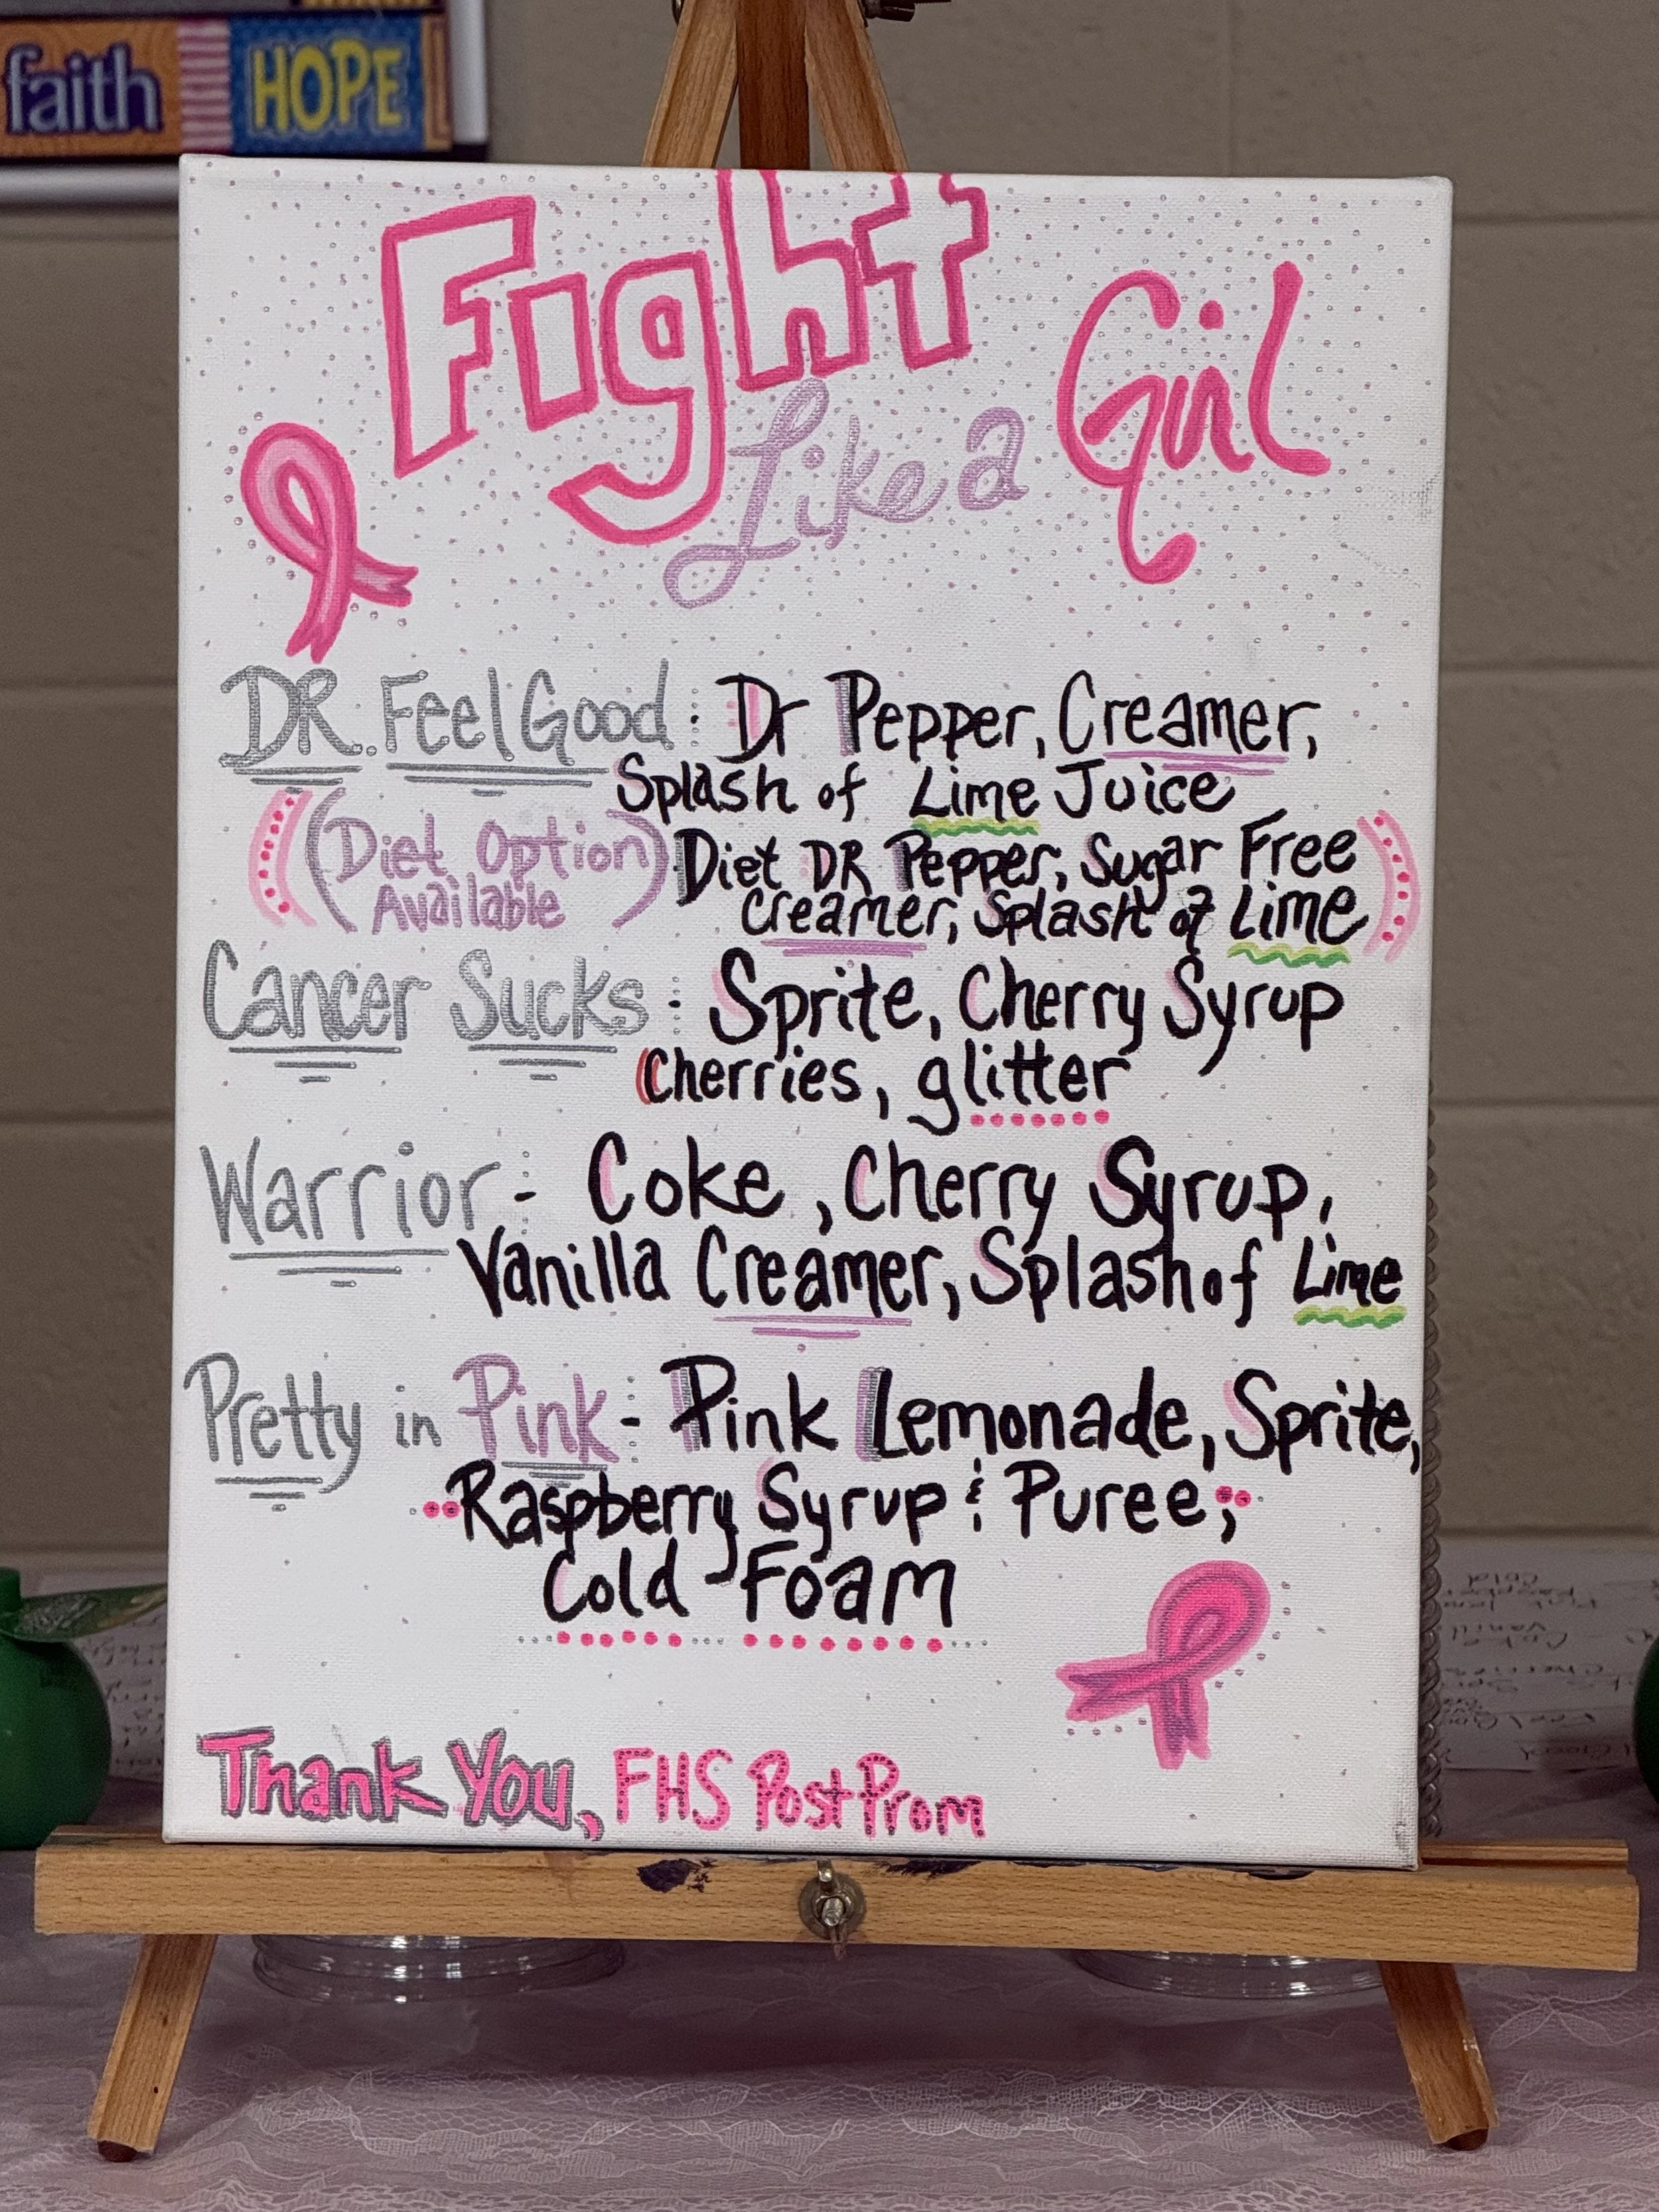 faith HOPE
Fight
Like a Girl
DR. Feel Good: Dr Pepper, Creamer,
Splash of Lime Juice
(Diet Option Available) Diet DR Pepper, Sugar Free
Creamer, Splash of Lime
Cancer Sucks: Sprite, Cherry Syrup
Cherries, glitter
Warrior:- Coke, Cherry Syrup,
Vanilla Creamer, Splash of Lime
Pretty in Pink:- Pink Lemonade, Sprite,
Raspberry Syrup & Puree,
Cold Foam
Thank You, FHS Post Prom